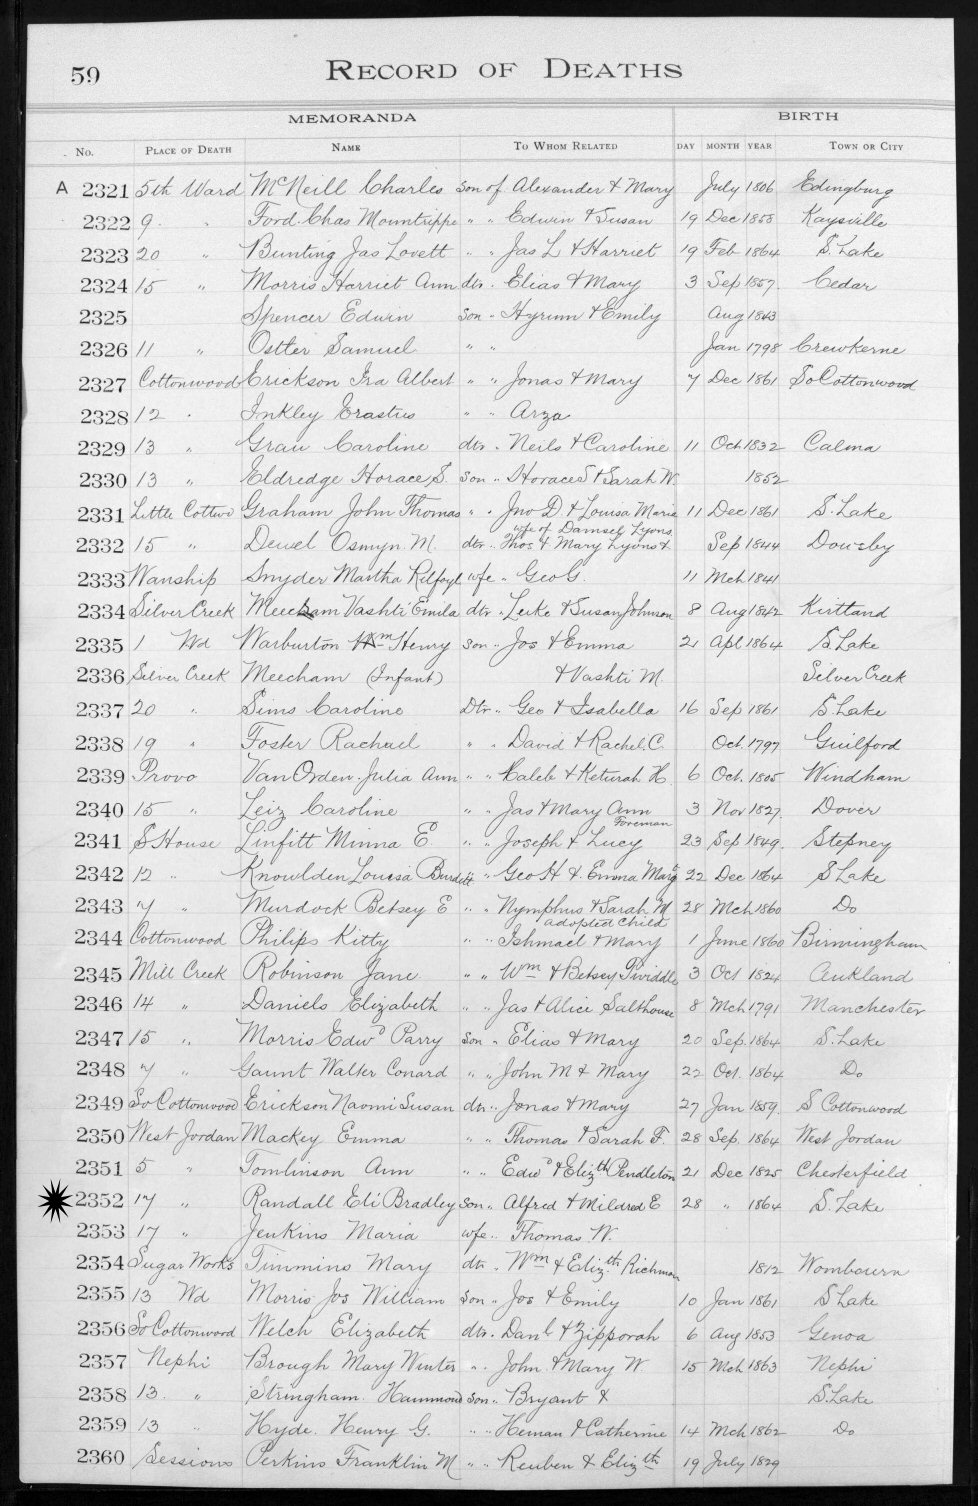 59 RECORD OF DEATHS
MEMORANDA BIRTH
No. PLACE OF DEATH NAME TO WHOM RELATED DAY MONTH YEAR TOWN OR CITY
A 2321 5th Ward McNeill Charles son of Alexander & Mary July 1806 Edingburg
2322 9 " Ford Chas Mountrippe " " Edwin & Susan 19 Dec 1858 Kaysville
2323 20 " Bunting Jas Lovett " " Jas L & Harriet 19 Feb 1864 S. Lake
2324 15 " Morris Harriet Ann dtr. Elias & Mary 3 Sep 1857. Cedar
2325 Spencer Edwin son " Hyrum & Emily Aug 1843
2326 11 " Ostler Samuel " " Jan 1798 Crewkerne
2327 Cottonwood Erickson Ira Albert " " Jonas & Mary 7 Dec 1861 So Cottonwood
2328 12 " Inkley Erastus " " Arza
2329 13 " Grau Caroline dtr " Neils & Caroline 11 Oct 1832 Calma
2330 13 " Eldredge Horace S. son " Horace S & Sarah W. 1852
2331 Little Cottwd Graham John Thomas " " Jno D. & Louisa Maria 11 Dec 1861 S. Lake
wife of Damsey Lyons
2332 15 " Dewel Osmyn M. dtr " Thos & Mary Lyons & Sep 1844 Dowsby
2333 Wanship Snyder Martha Kilfoyl wfe " Geo G. 11 Mch 1841
2334 Silver Creek Meecham Vashti Emila dtr " Leike & Susan Johnson 8 Aug 1842 Kirtland
2335 1 Wd Warburton Wm Henry son " Jos & Emma 21 Apl 1864 S. Lake
2336 Silver Creek Meecham (Infant) & Vashti M. Silver Creek
2337 20 " Sims Caroline Dtr " Geo & Isabella 16 Sep 1861 S Lake
2338 19 " Foster Rachael " " David & Rachel C. Oct. 1797 Guilford
2339 Provo VanOrden Julia Ann " " Caleb & Keturah H. 6 Oct. 1805 Windham
2340 15 " Leiz Caroline " " Jas & Mary Ann 3 Nov 1827. Dover
Foreman
2341 S House Linfitt Minna E. " " Joseph & Lucy 23 Sep 1849. Stepney
2342 12 " Knowlden Louisa Burdett " " Geo H & Emma Margt 22 Dec 1864 S Lake
2343 7 " Murdock Betsey E " " Nymphus & Sarah M 28 Mch 1860 Do
adopted child
2344 Cottonwood Philips Kitty " " Ishmael & Mary 1 June 1860 Birmingham
2345 Mill Creek Robinson Jane " " Wm & Betsey Twiddle 3 Oct 1824 Aukland
2346 14 " Daniels Elizabeth " " Jas & Alice Salthouse 8 Mch 1791 Manchester
2347 15 " Morris Edwd Parry son " Elias & Mary 20 Sep. 1864 S. Lake
2348 7 " Gaunt Walter Conard " " John M & Mary 22 Oct. 1864 Do
2349 So Cottonwood Erickson Naomi Susan dtr " Jonas & Mary 27 Jan 1859. S Cottonwood
2350 West Jordan Mackey Emma " " Thomas & Sarah F. 28 Sep. 1864 West Jordan
2351 5 " Tomlinson Ann " " Edwd & Elizth Pendleton 21 Dec 1825 Chesterfield
2352 17 " Randall Eli Bradley son " Alfred & Mildred E 28 " 1864 S. Lake
2353 17 " Jenkins Maria wfe " Thomas W.
2354 Sugar Works Timmins Mary dtr " Wm & Elizth Richman 1812 Wombourn
2355 13 Wd Morris Jos William son " Jos & Emily 10 Jan 1861 S Lake
2356 So Cottonwood Welch Elizabeth dtr. Danl & Zipporah 6 Aug 1853 Genoa
2357 Nephi Brough Mary Winter " " John & Mary W. 15 Mch 1863 Nephi
2358 13. " Stringham Hammond son " Bryant & S. Lake
2359 13 " Hyde Henry G. " " Heman & Catherine 14 Mch 1862 Do
2360 Sessions Perkins Franklin M " " Reuben & Elizth 19 July 1829